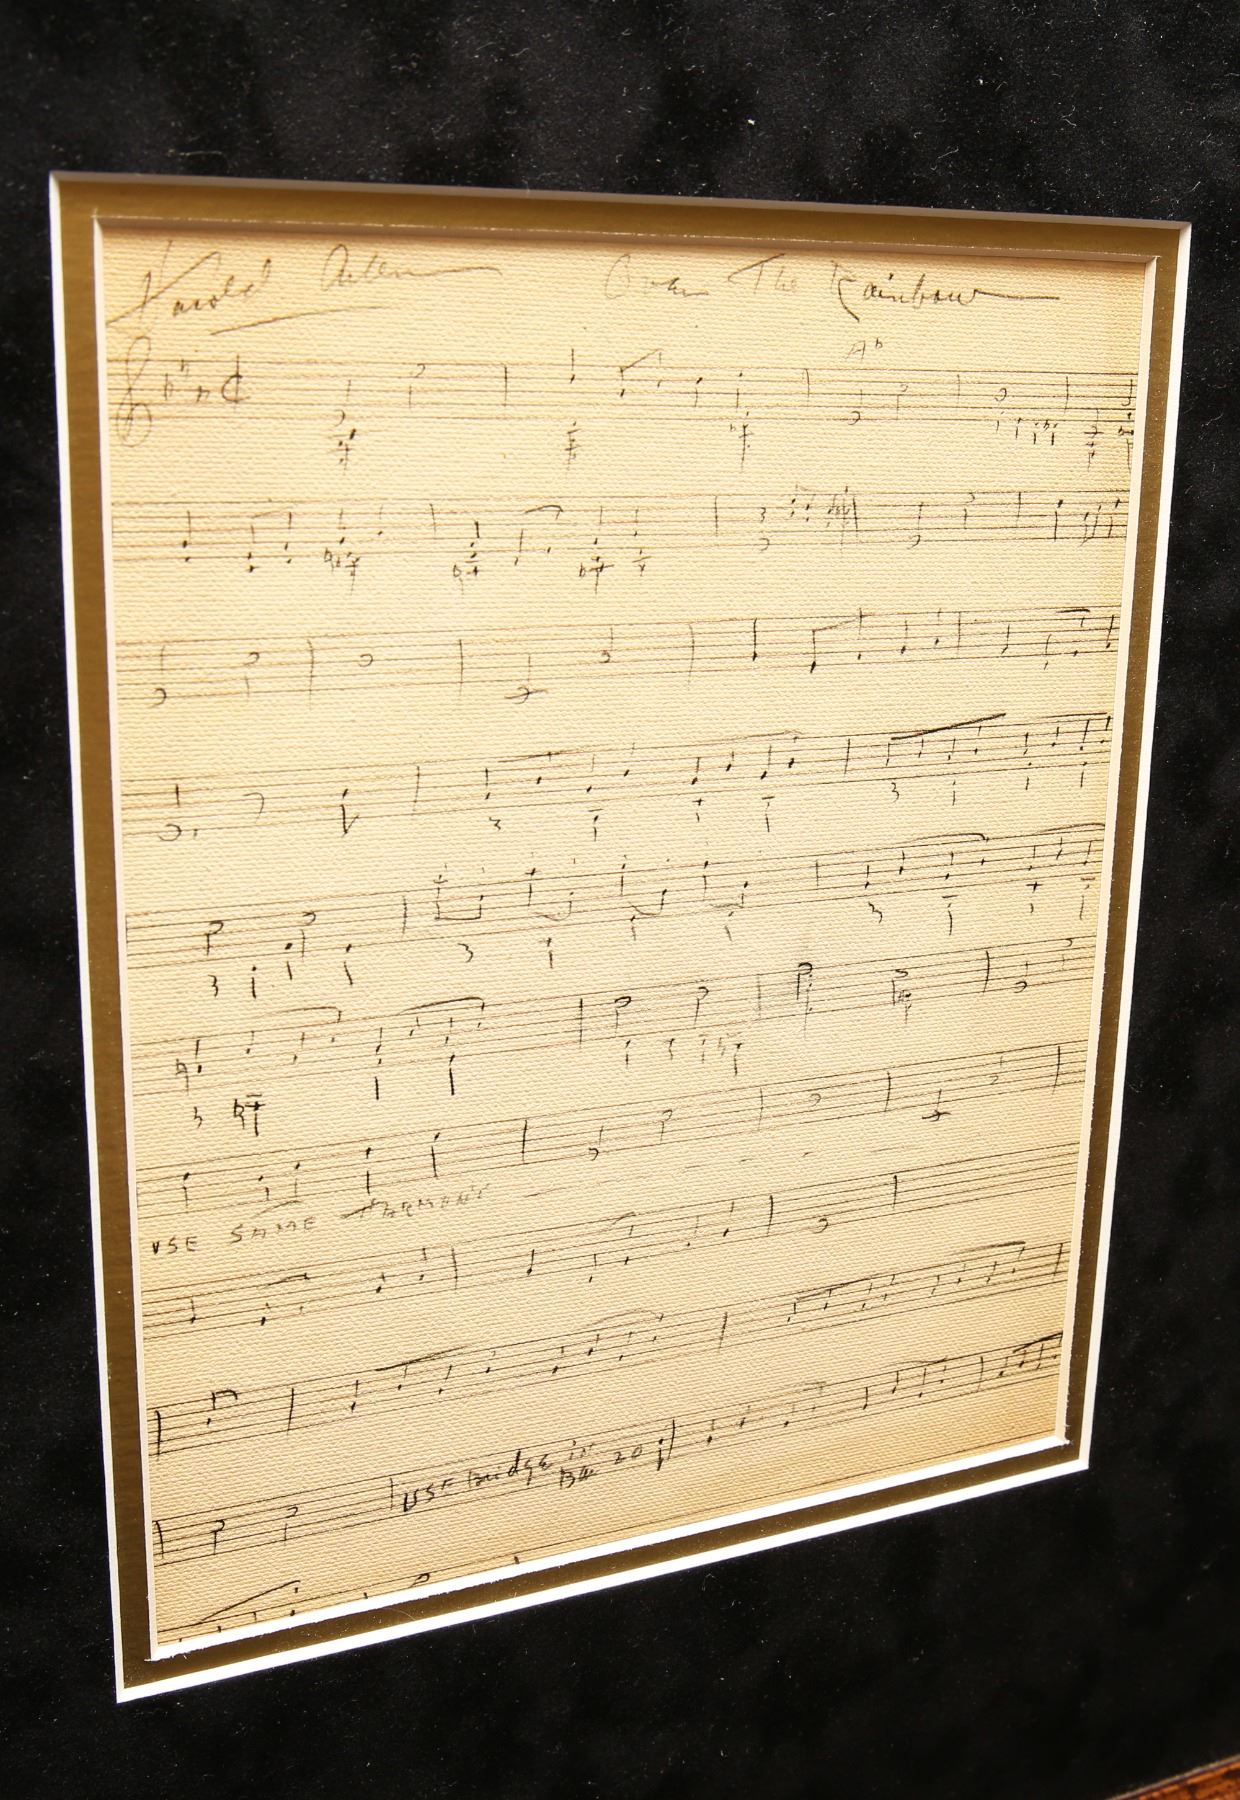 Harold Arlen Over The Rainbow
Ab
USE SAME HARMONY
USE Bridge in
Bar 20